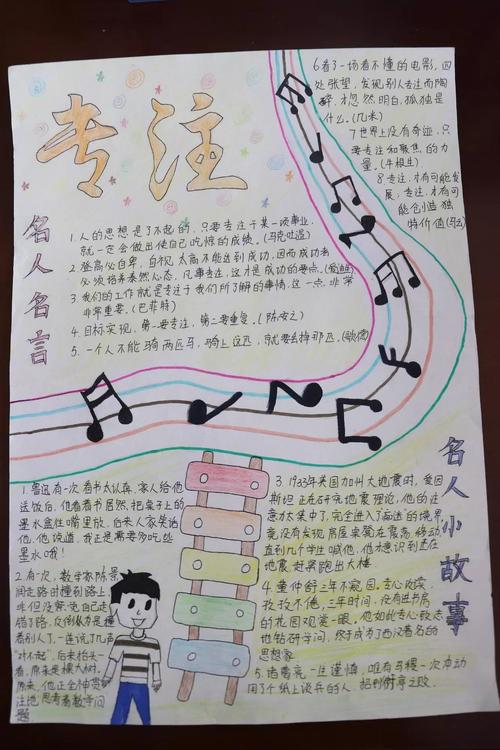 专注
名人名言
1 人的思想是了不起的,只要专注于某一项事业,
就一定会做出使自己吃惊的成绩。(马克吐温)
2. 登高必自卑,自视太高不能达到成功,因而成功者
必须培养泰然心态,凡事专注,这才是成功的要点。(爱迪生)
3. 我们的工作就是专注于我们所了解的事情,这一点非常
非常重要。(巴菲特)
4. 目标实现,第一要专注,第二要重复。(陈安之)
5. 一个人不能骑两匹马,骑上这匹,就要丢掉那匹。(歌德)
6 看了一场看不懂的电影,四
处张望,发现别人专注而陶
醉,才忽然明白,孤独是
什么。(几米)
7 世界上没有奇迹,只
要专注和聚焦的力
量。(牛根生)
8 专注,才有可能发
展,专注,才有可
能创造独
特价值(马云)
名人小故事
1. 鲁迅有一次看书太认真,家人给他
送饭后,他看着书居然,把桌子上的
墨水盒往嘴里放,后来人家笑话
他,他说道,我正是需要多吃些
墨水哦!
2. 有一次,数学家陈景
润走路时撞到路上,
非但没察觉自己走
错了路,反倒以为是撞
着别人了,一连说了几声
“对不起”,后来抬头一
看,原来是棵大树,
原来,他正全神贯
注地思考着数学问
题
3. 1933年美国加州大地震时,爱因
斯坦正在研究地震理论,他的注
意力太集中了,完全进入了
的境界
竟没有发现房屋桌凳在震荡移动,
直到几个学生喊他,他才意识到正在
地震,赶紧跑出大楼
4. 董仲舒三年不窥园。专心攻读,
孜孜不倦,三年时间,没有进书房
的花园观赏一眼,他如此专心致志
地钻研学问,终于成为西汉著名的
思想家
5. 诸葛亮一生谨慎,唯有马稷一次冲动
用了个纸上谈兵的人,招到街亭之败。